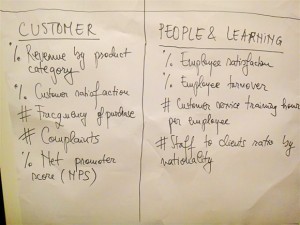 CUSTOMER
% Revenue by product
category
% Customer satisfaction
# Frequency of purchase
# Complaints
% Net promoter
score (NPS)
PEOPLE & LEARNING
% Employee satisfaction
% Employee turnover
# Customer service training hours
per employee
# Staff to clients ratio by
nationality